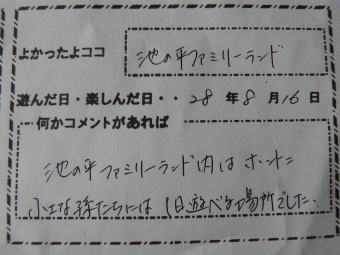 よかったよココ
池の平ファミリーランド
遊んだ日・楽しんだ日・・28年8月16日
何かコメントがあれば
池の平ファミリーランド内はホントに
小さな孫たちには1日遊べる場所でした.